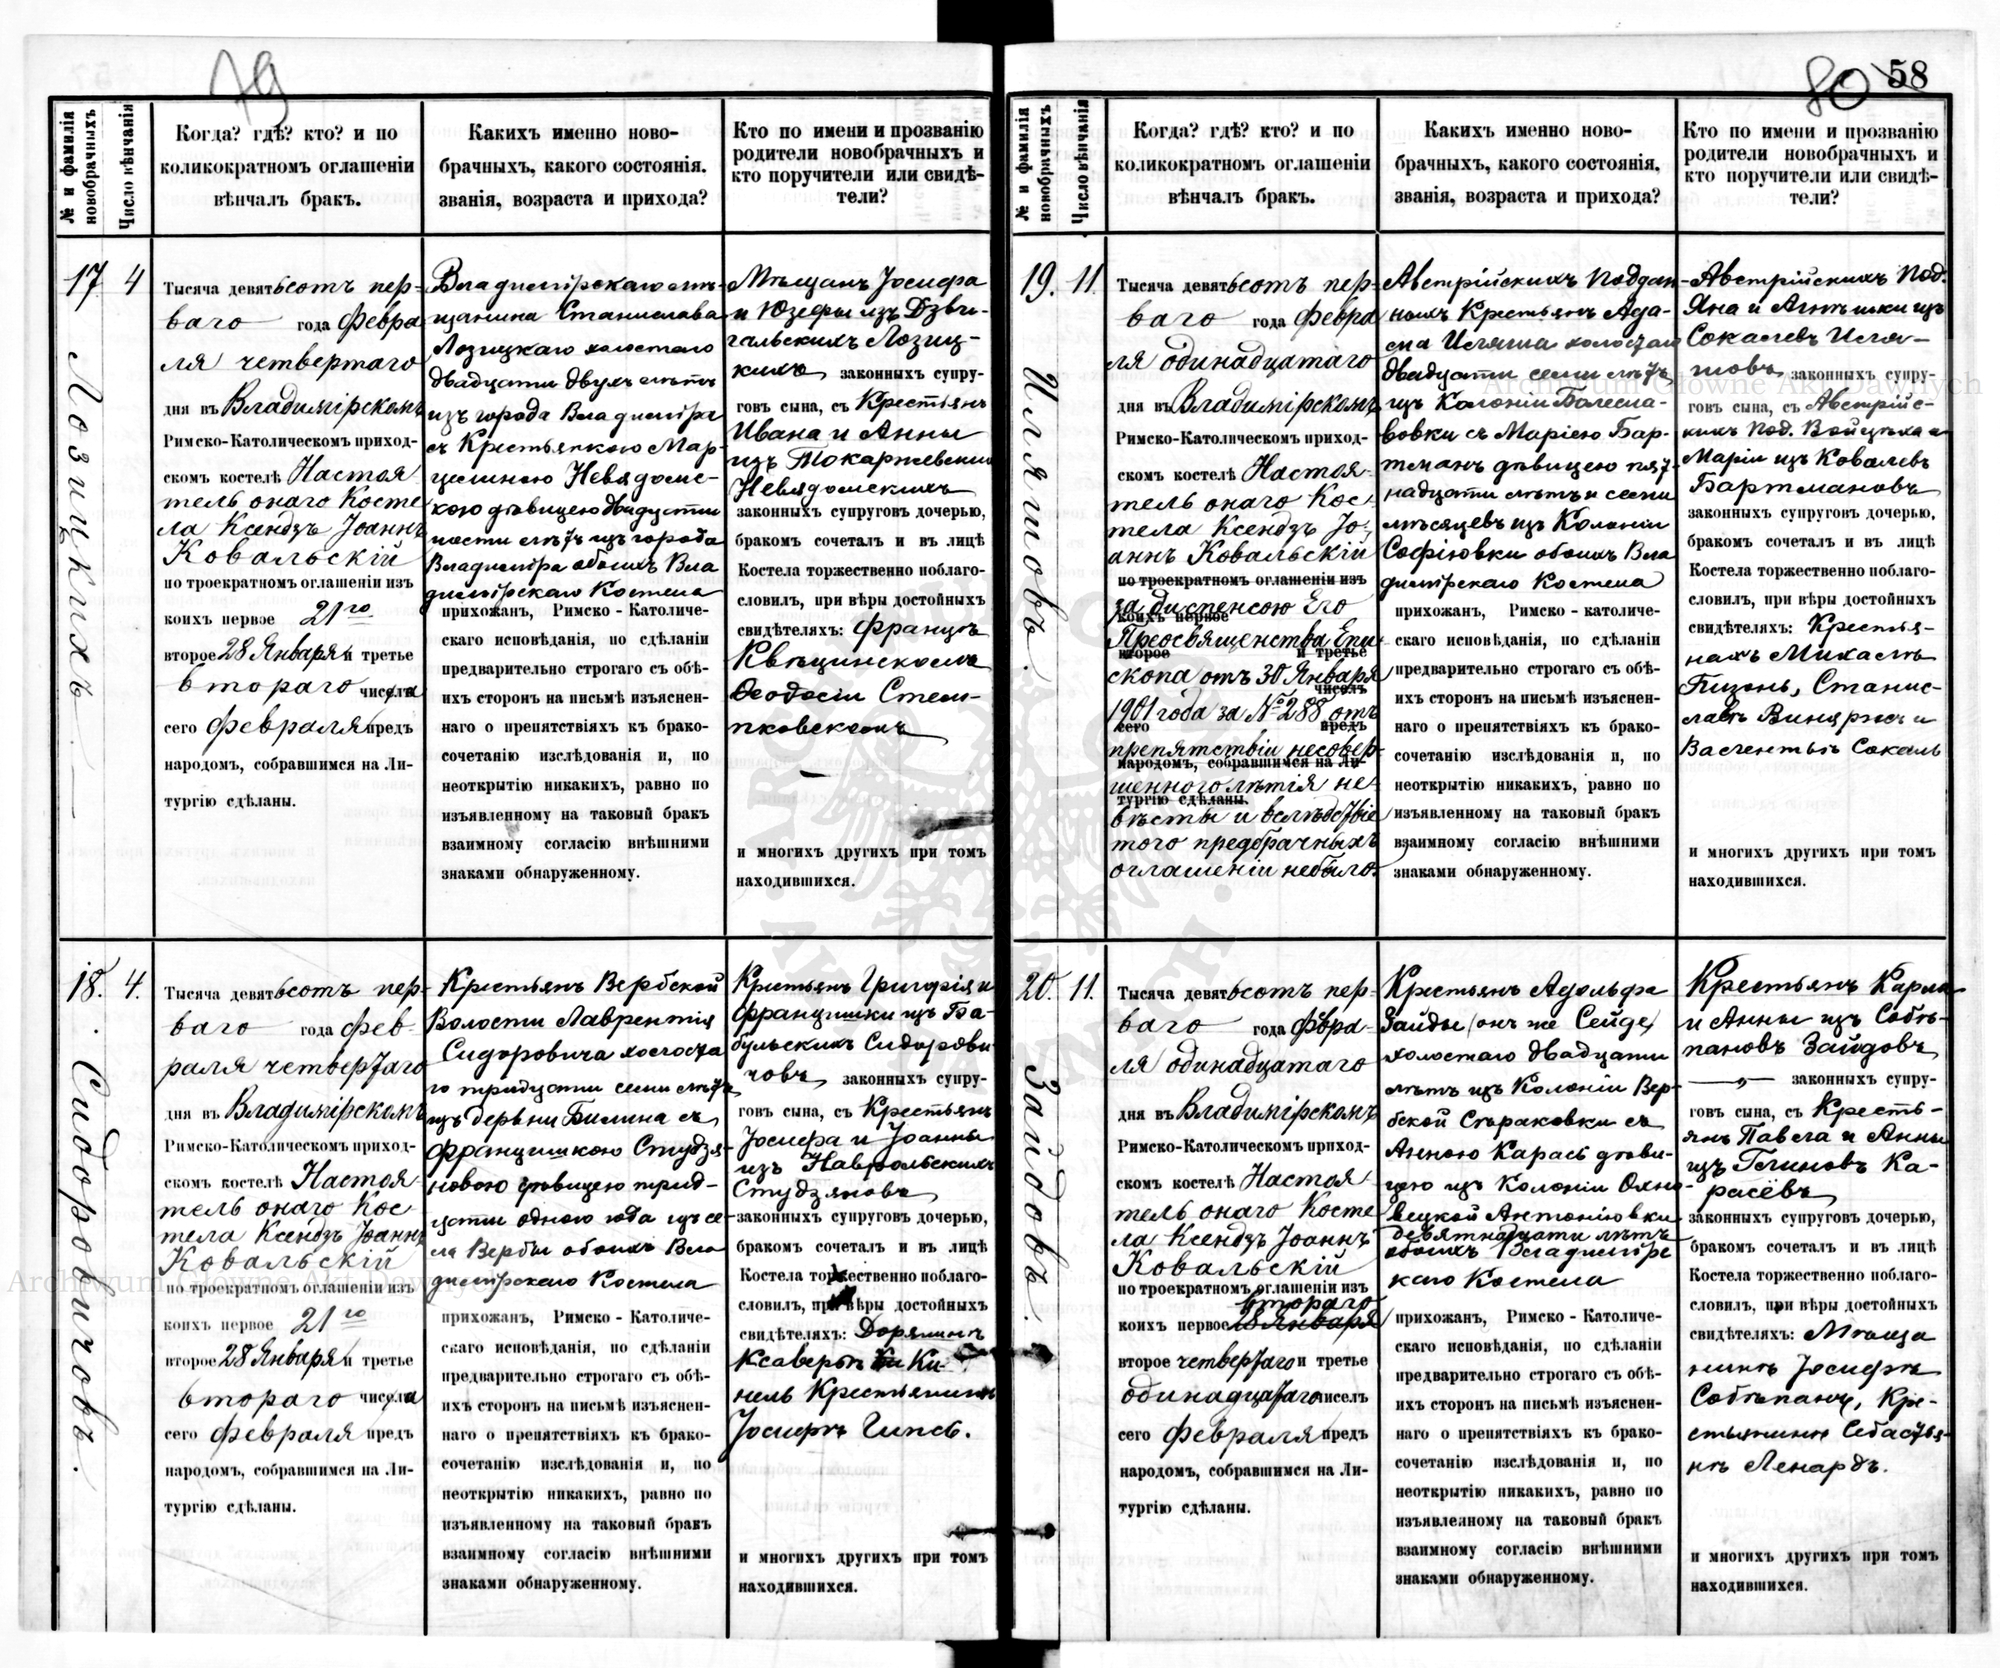 79
№ и фамилія новобрачныхъ
Число вѣнчанія
Когда? гдѣ? кто? и по
коликократномъ оглашеніи
вѣнчалъ бракъ.
Какихъ именно ново-
брачныхъ, какого состоянія.
званія, возраста и прихода?
Кто по имени и прозванію
родители новобрачныхъ и
кто поручители или свидѣ-
тели?
17 4
Лозицкихъ
Тысяча девятьсотъ пер-
ваго года Февра
ля четвертаго
дня въ Владимірскомъ
Римско-Католическомъ приход-
скомъ костелѣ Настоя
тель онаго Косте
ла Ксендзъ Іоаннъ
Ковальскій
по троекратномъ оглашеніи изъ
коихъ первое 21го
второе 28 Января и третье
втораго числа
сего февраля предъ
народомъ, собравшимся на Ли-
тургію сдѣланы.
Владимірскаго мѣ-
щанина Станислава
Лозицкаго холостаго
двадцати двухъ лѣтъ
изъ города Владиміра
съ Крестьянкою Мар-
целиною Невядомс-
кою дѣвицею двадцати
шести лѣтъ изъ города
Владиміра обоихъ Вла
димірскаго Костела
прихожанъ, Римско-Католиче-
скаго исповѣданія, по сдѣланіи
предварительно строгаго съ обѣ-
ихъ сторонъ на письмѣ изъяснен-
наго о препятствіяхъ къ брако-
сочетанію изслѣдованія и, по
неоткрытію никакихъ, равно по
изъявленному на таковый бракъ
взаимному согласію внѣшними
знаками обнаруженному.
Мѣщанъ Іосифа
и Юзефы изъ Дзви-
гальскихъ Лозиц-
кихъ законныхъ супру-
говъ сына, съ Крестьянъ
Ивана и Анны
изъ Токаржевскихъ
Невядомскихъ
законныхъ супруговъ дочерью,
бракомъ сочеталъ и въ лицѣ
Костела торжественно поблаго-
словилъ, при вѣры достойныхъ
свидѣтеляхъ: Францѣ
Квѣцинскомъ
Ѳеодосіи Стем-
пковскомъ
и многихъ другихъ при томъ
находившихся.
18. 4.
Сидоровичовъ.
Тысяча девятьсотъ пер-
ваго года фев-
раля четвертаго
дня въ Владимірскомъ
Римско-Католическомъ приход-
скомъ костелѣ Настоя-
тель онаго Кос
тела Ксендзъ Іоаннъ
Ковальскій
по троекратномъ оглашеніи изъ
коихъ первое 21го
второе 28 Января и третье
втораго числа
сего февраля предъ
народомъ, собравшимся на Ли-
тургію сдѣланы.
Крестьянъ Вербской
Волости Лаврентія
Сидоровича холоста
го тридцати семи лѣтъ
изъ деревни Билина съ
Францишкою Студзя-
новою дѣвицею трид-
цати одного года изъ се-
ла Вербы обоихъ Вла
димірскаго Костела
прихожанъ, Римско-Католиче-
скаго исповѣданія, по сдѣланіи
предварительно строгаго съ обѣ-
ихъ сторонъ на письмѣ изъяснен-
наго о препятствіяхъ къ брако-
сочетанію изслѣдованія и, по
неоткрытію никакихъ, равно по
изъявленному на таковый бракъ
взаимному согласію внѣшними
знаками обнаруженному.
Крестьянъ Григорія и
Францишки изъ Ба-
бульскихъ Сидорови
човъ законныхъ супру-
говъ сына, съ Крестьянъ
Іосифа и Іоанны
изъ Навробльскихъ
Студзяновъ
законныхъ супруговъ дочерью,
бракомъ сочеталъ и въ лицѣ
Костела торжественно поблаго-
словилъ, при вѣры достойныхъ
свидѣтеляхъ: Дорянинъ
Ксаверъ Ки-
нель Крестьянинъ
Іосифъ Гипсъ.
и многихъ другихъ при томъ
находившихся.
80 58
№ и фамилія новобрачныхъ
Число вѣнчанія
Когда? гдѣ? кто? и по
коликократномъ оглашеніи
вѣнчалъ бракъ.
Какихъ именно ново-
брачныхъ, какого состоянія,
званія, возраста и прихода?
Кто по имени и прозванію
родители новобрачныхъ и
кто поручители или свидѣ-
тели?
19. 11.
Иляшовъ.
Тысяча девятьсотъ пер-
ваго года февра
ля одинадцатаго
дня въ Владимірскомъ
Римско-Католическомъ приход-
скомъ костелѣ Настоя-
тель онаго Кос-
тела Ксендзъ Іо-
аннъ Ковальскій
по троекратномъ оглашеніи изъ
за диспенсою Его
коихъ первое
Преосвященства Епи
второе и третье
скопа отъ 30 Января
чиселъ
1901 года за № 288 отъ
сего предъ
препятствіи несовер-
народомъ, собравшимся на Ли-
шенного лѣтія не-
тургію сдѣланы.
вѣсты и вслѣдствіе
того предбрачныхъ
оглашеній небыло.
Австрійскихъ Поддан-
ныхъ Крестьянъ Ада-
ма Иляша холостаго
двадцати семи лѣтъ
изъ Колоніи Болесла-
вовки съ Маріею Бар-
тманъ дѣвицею пят-
надцати лѣтъ и семи
мѣсяцевъ изъ Колоніи
Софіювки обоихъ Вла
димірскаго Костела
прихожанъ, Римско-католиче-
скаго исповѣданія, по сдѣланіи
предварительно строгаго съ обѣ-
ихъ сторонъ на письмѣ изъяснен-
наго о препятствіяхъ къ брако-
сочетанію изслѣдованія и, по
неоткрытію никакихъ, равно по
изъявленному на таковый бракъ
взаимному согласію внѣшними
знаками обнаруженному.
Австрійскихъ Под.
Яна и Агнѣшки изъ
Соколевъ Иля-
шовъ законныхъ супру-
говъ сына, съ Австрійс-
кихъ Под. Войцѣха и
Маріи изъ Ковалевъ
Бартмановъ
законныхъ супруговъ дочерью,
бракомъ сочеталъ и въ лицѣ
Костела торжественно поблаго-
словилъ, при вѣры достойныхъ
свидѣтеляхъ: Крестья-
нахъ Михаилѣ
Пизонь, Станис-
лавѣ Виняржъ и
Валентыѣ Сокаль
и многихъ другихъ при томъ
находившихся.
20. 11.
Зайдовъ.
Тысяча девятьсотъ пер-
ваго года февра-
ля одинадцатаго
дня въ Владимірскомъ
Римско-Католическомъ приход-
скомъ костелѣ Настоя
тель онаго Косте
ла Ксендзъ Іоаннъ
Ковальскій
по троекратномъ оглашеніи изъ
втораго
коихъ первое 28 Января
второе четвертаго и третье
одинадцатаго чиселъ
сего февраля предъ
народомъ, собравшимся на Ли-
тургію сдѣланы.
Крестьянъ Адольфа
Зайды (онъ же Сейде)
холостаго двадцати
лѣтъ изъ Колоніи Вер-
бской Стараковки съ
Анною Карась дѣви-
цею изъ Колоніи Охно
вецкой Антоніовки
девятнадцати лѣтъ
обоихъ Владимірс
каго Костела
прихожанъ, Римско-Католиче-
скаго исповѣданія, по сдѣланіи
предварительно строгаго съ обѣ-
ихъ сторонъ на письмѣ изъяснен-
наго о препятствіяхъ къ брако-
сочетанію изслѣдованія и, по
неоткрытію никакихъ, равно по
изъявленному на таковый бракъ
взаимному согласію внѣшними
знаками обнаруженному.
Крестьянъ Карла
и Анны изъ Собѣ-
пановъ Зайдовъ
законныхъ супру-
говъ сына, съ Кресть-
янъ Павла и Анны
изъ Глиновъ Ка-
расёвъ
законныхъ супруговъ дочерью,
бракомъ сочеталъ и въ лицѣ
Костела торжественно поблаго-
словилъ, при вѣры достойныхъ
свидѣтеляхъ: Мѣща
нинъ Іосифъ
Собѣпанъ, Кре-
стьянинъ Себастья-
нъ Ленардъ.
и многихъ другихъ при томъ
находившихся.
Archiwum Główne Akt Dawnych
Archiwum Główne Akt Dawnych